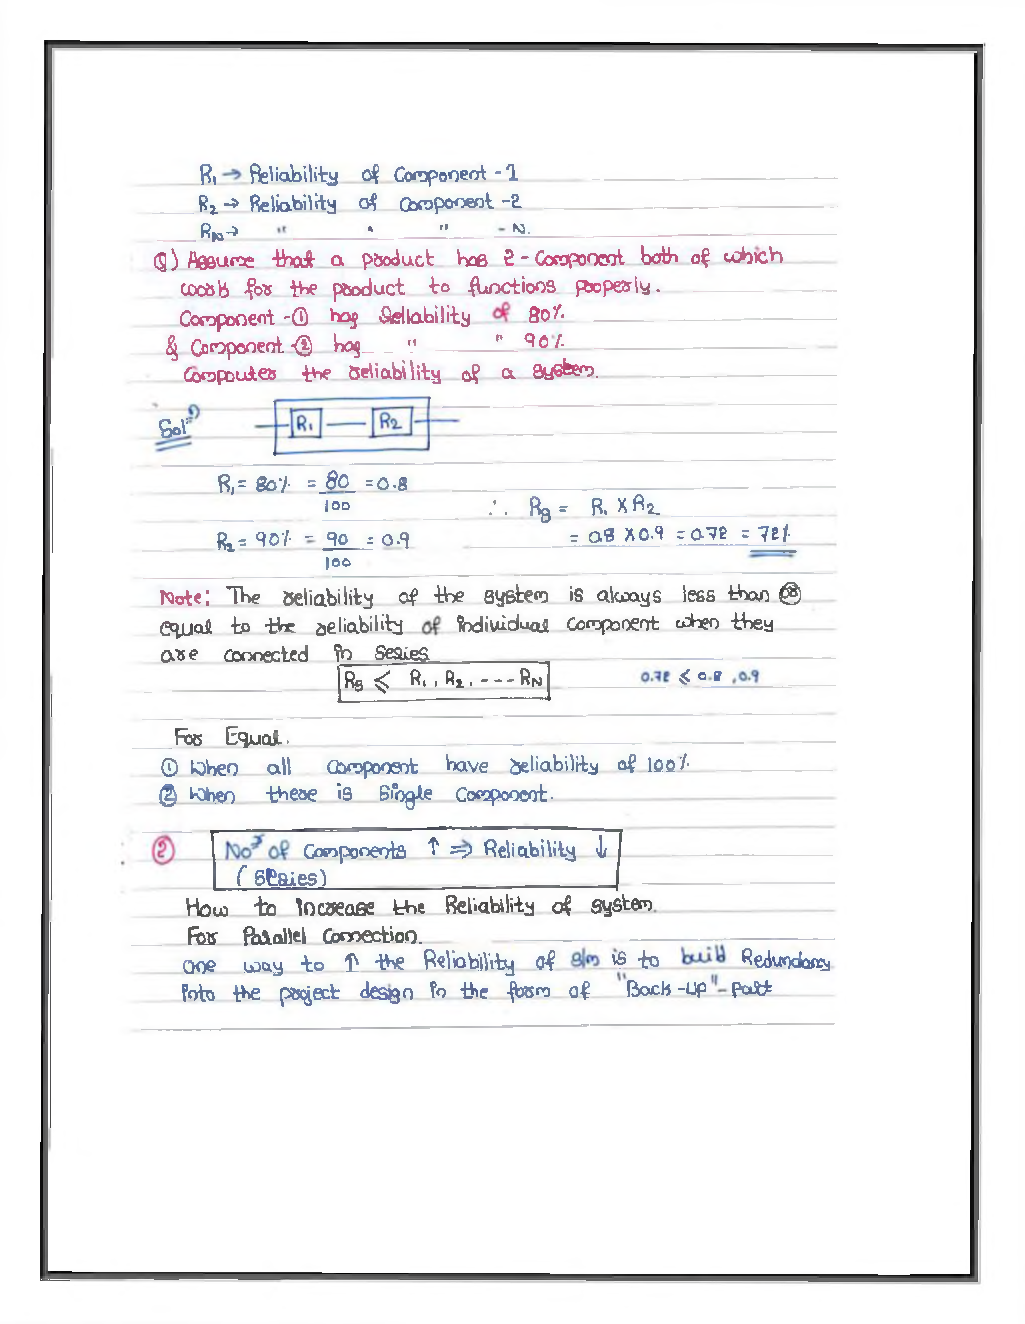 R₁ → Reliability of Component - 1
R₂ → Reliability of Component - 2
R_N → " " " - N.
Q) Assume that a product has 2 - Component both of which
work for the product to functions properly.
Component - ① has Reliability of 80%
& Component - ② has " " 90%
Computes the reliability of a system.
Sol⁼ⁿ) R₁ R₂
R₁ = 80% = 80/100 = 0.8
∴ Rs = R₁ X R₂
R₂ = 90% = 90/100 = 0.9
= 0.8 X 0.9 = 0.72 = 72%
Note: The reliability of the system is always less than (or)
equal to the reliability of individual component when they
are connected in series
Rs ⩽ R₁, R₂, - - - R_N 0.72 ⩽ 0.8, 0.9
For Equal.
① When all component have reliability of 100%
② When there is Single Component.
② No^s of Components ↑ ⇒ Reliability ↓
(Series)
How to Increase the Reliability of system.
For Parallel Connection.
One way to ↑ the Reliability of s/m is to build Redundancy
into the project design in the form of "Back-up"-part